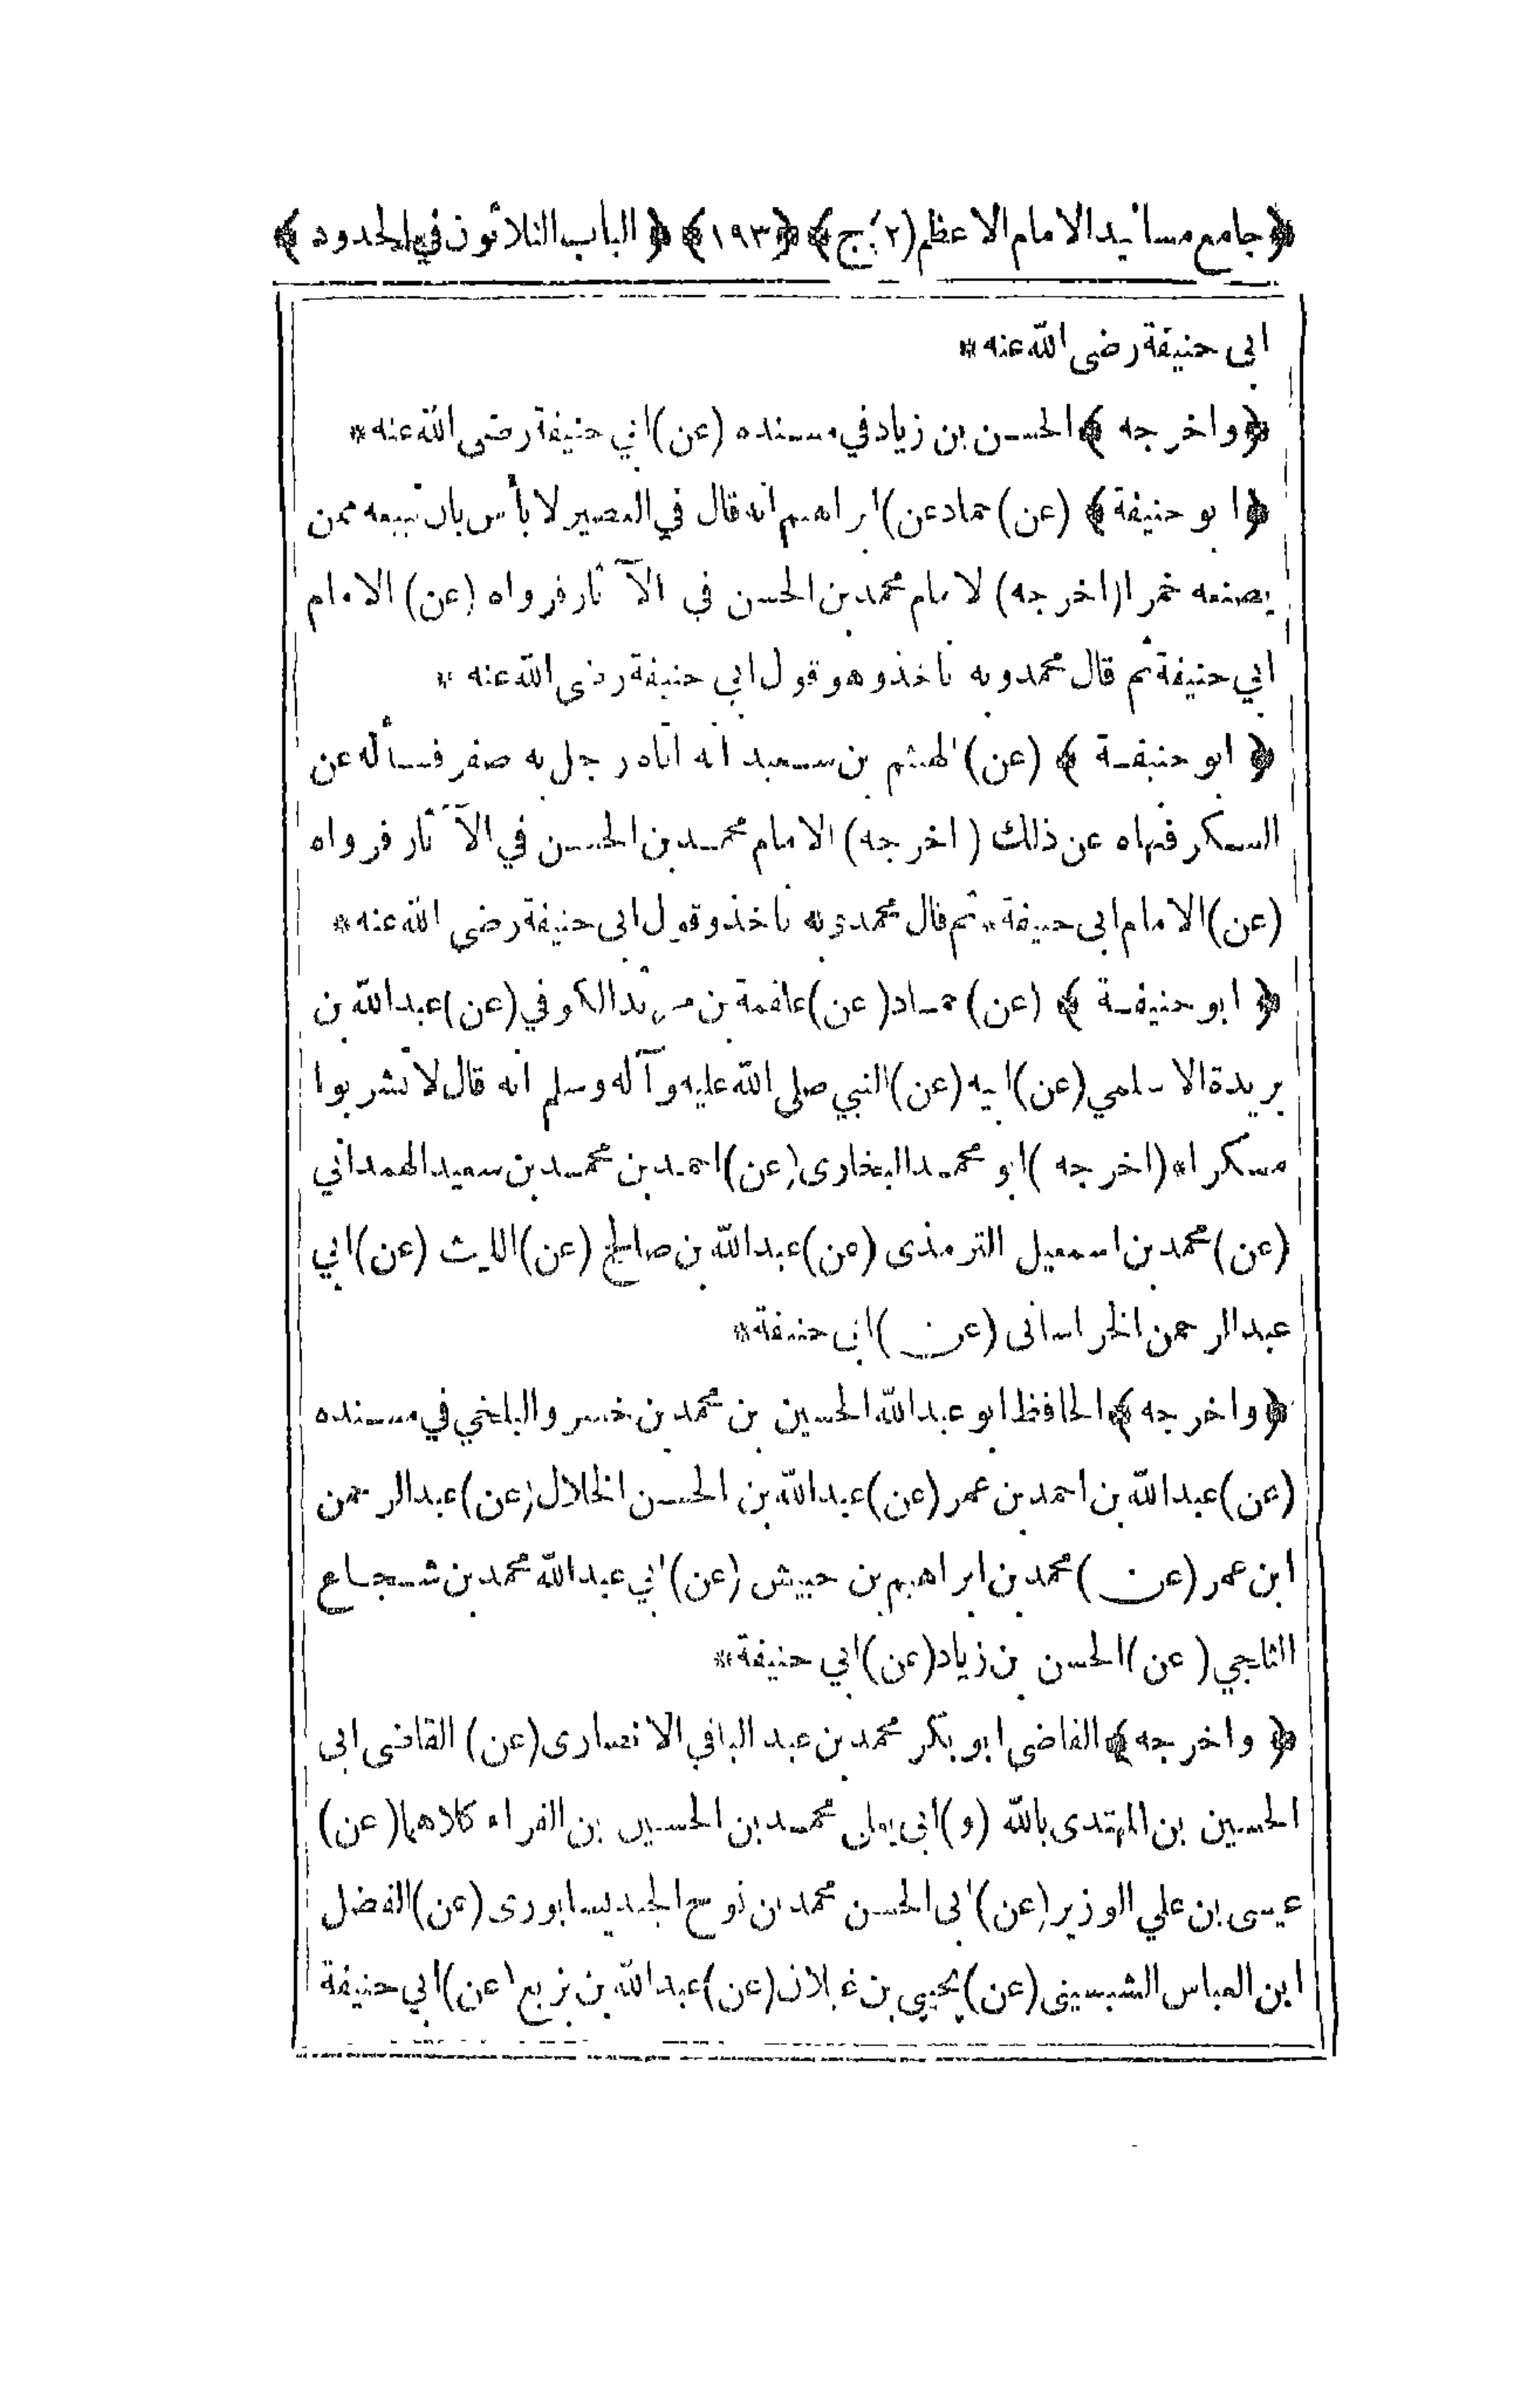 ﴿جامع مسانيد الامام الاعظم (٢؛ج)﴾ ﴿١٩٣﴾ ﴿الباب الثلاثون في الحدود﴾
ابى حنيفة رضى الله عنه *
﴿واخرجه﴾ الحسن بن زياد في مسنده (عن) ابي حنيفة رضى الله عنه *
﴿ابو حنيفة﴾ (عن) حماد عن) ابراهيم انه قال في العصير لا بأس بان تبيعه ممن
يصنعه خمرا (اخرجه) لامام محمد بن الحسن في الآثار فرواه (عن) الامام
ابي حنيفة ثم قال محمد وبه ناخذ وهو قول ابي حنيفة رضى الله عنه *
﴿ابو حنيفة﴾ (عن) الهيثم بن سعيد انه اتاه رجل به صفر فسأله عن
السكر فنهاه عن ذلك (اخرجه) الامام محمد بن الحسن في الآثار فرواه
(عن) الامام ابى حنيفة * ثم قال محمد وبه ناخذ وقول ابى حنيفة رضى الله عنه *
﴿ابو حنيفة﴾ (عن) حماد (عن) علقمة بن مرثد الكوفي (عن) عبد الله بن
بريدة الاسلمي (عن) ابيه (عن) النبي صلى الله عليه وآله وسلم انه قال لا تشربوا
مسكرا * (اخرجه) ابو محمد البخارى (عن) احمد بن محمد بن سعيد الهمداني
(عن) محمد بن اسمعيل الترمذى (عن) عبد الله بن صالح (عن) الليث (عن) ابي
عبد الرحمن الخراسانى (عن) ابى حنيفة *
﴿واخرجه﴾ الحافظ ابو عبد الله الحسين بن محمد بن خسرو البلخي في مسنده
(عن) عبد الله بن احمد بن عمر (عن) عبد الله بن الحسن الخلال (عن) عبد الرحمن
ابن عمر (عن) محمد بن ابراهيم بن حبيش (عن) ابي عبد الله محمد بن شجاع
الثلجي (عن) الحسن بن زياد (عن) ابي حنيفة *
﴿واخرجه﴾ القاضى ابو بكر محمد بن عبد الباقي الانصارى (عن) القاضى ابى
الحسين بن المهتدى بالله (و) ابى يعلى محمد بن الحسين بن الفراء كلاهما (عن)
عيسى بن علي الوزير (عن) ابى الحسن محمد بن نوح الجنديسابورى (عن) الفضل
ابن العباس الشبسينى (عن) يحيى بن غيلان (عن) عبد الله بن بزيع (عن) ابي حنيفة